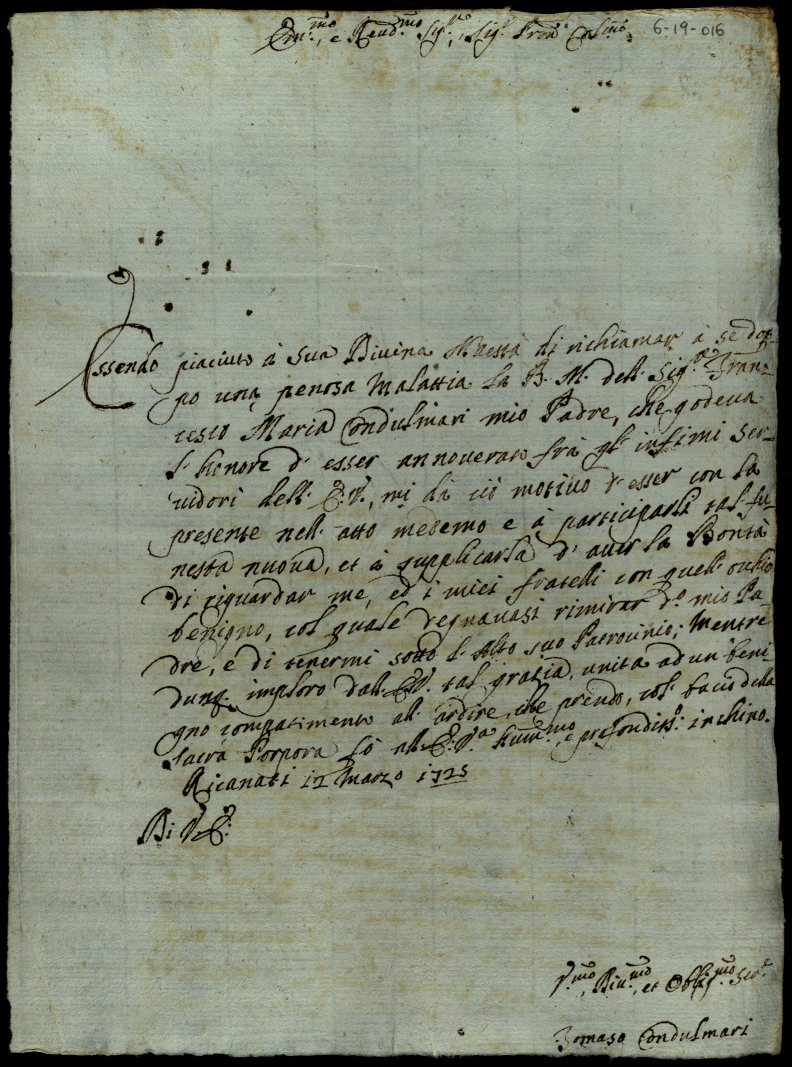 Em.mo, e Rev.mo Sig.re, Sig.r Pron Col.mo
6-19-016
Essendo piaciuto à Sua Divina Maestà di richiamar à se dop-
po una penosa Malattia la B. M. del Sig.re Fran-
cesco Maria Condulmari mio Padre, che godeva
l'honore d'esser annoverato frà gl'infimi ser-
vidori dell'E.V., mi dà ciò motivo d'esser con la
presente nell'atto medemo e à participarla tal fu-
nesta nuova, et à supplicarla d'aver la Bontà
di riguardar me, ed i miei fratelli con quell'occhio
benigno, col quale degnavasi rimirar d.o mio Pa-
dre, e di tenermi sotto l'Alto suo Patrocinio; Mentre
dunq. imploro dall'E.V. tal gratia, unita ad un beni-
gno compatimento all'ardire, che prendo, col bacio della
sacra Porpora fò all'E. V.ra hum.mo, e profondiss.o inchino.
Ricanati 12 Marzo 1725
Di V.E.
V.mo, Div.mo, et Oblig.mo Ser.e
Tomaso Condulmari